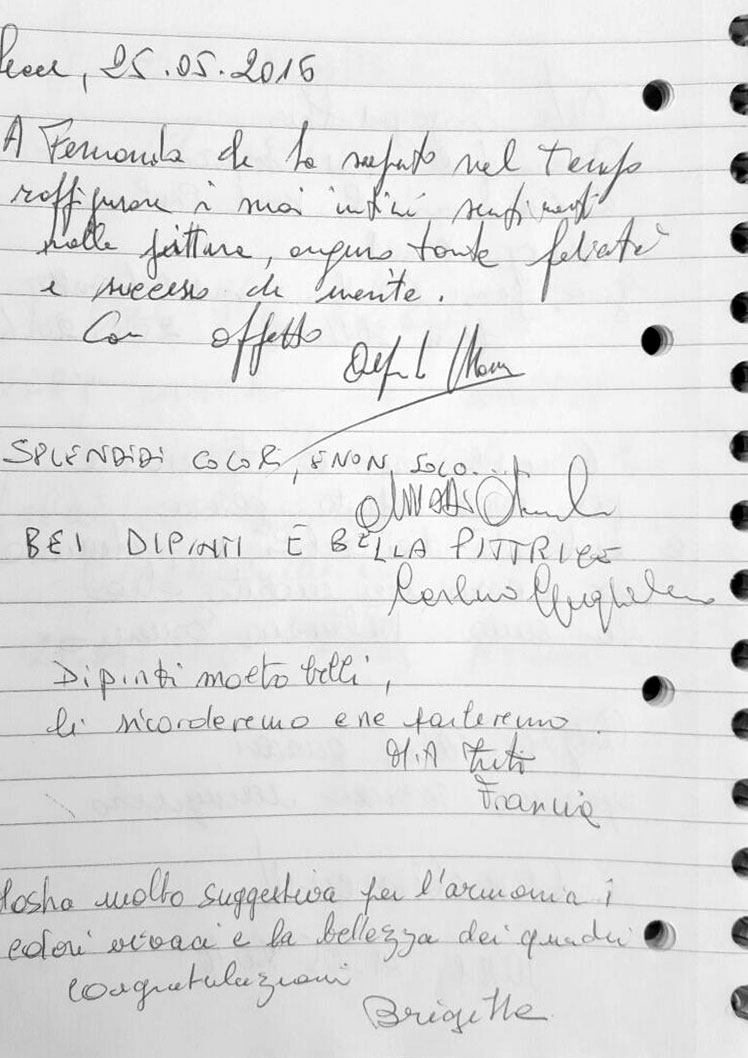 Lecce, 25.05.2016
A Fernanda che ha saputo nel tempo
raffigurare i suoi intimi sentimenti
nelle pitture, auguro tante felicità
e successo di merito.
Con affetto
SPLENDIDI COLORI, E NON SOLO...
BEI DIPINTI E BELLA PITTRICE
Dipinti molto belli,
li ricorderemo e ne parleremo.
Francia
Mostra molto suggestiva per l'armonia i
colori vivaci e la bellezza dei quadri
congratulazioni
Brigette